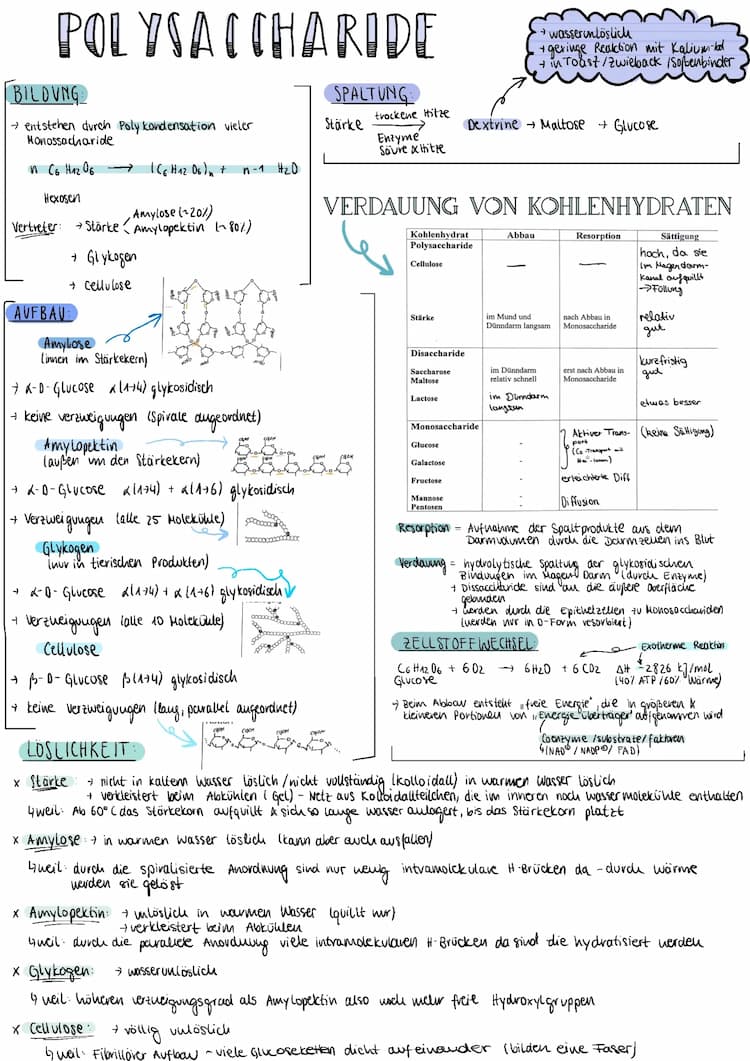 POLYSACCHARIDE
→ wasserunlöslich
→ geringe Reaktion mit Kalium-Iod
→ in Toast/Zwieback/Soßenbinder
BILDUNG:
→ entstehen durch Polykondensation vieler
Monosaccharide
n C6 H12 O6 → (C6 H12 O6)n + n-1 H2O
Hexosen
Vertreter: → Stärke < Amylose (~20%)
Amylopektin (~80%)
→ Glykogen
→ Cellulose
SPALTUNG:
Stärke trockene Hitze → Dextrine → Maltose → Glucose
Enzyme
Säure & Hitze
VERDAUUNG VON KOHLENHYDRATEN
Kohlenhydrat Abbau Resorption Sättigung
Polysaccharide
Cellulose — — hoch, da sie
im Magendarm-
kanal aufquillt
→ Füllung
Stärke im Mund und Dünndarm langsam nach Abbau in Monosaccharide relativ gut
Disaccharide
Saccharose Maltose im Dünndarm relativ schnell erst nach Abbau in Monosaccharide kurzfristig gut
Lactose im Dünndarm langsam etwas besser
Monosaccharide
Glucose - Aktiver Trans-
port (keine Sättigung)
Galactose -
Fructose - erleichterte Diff
Mannose
Pentosen - Diffusion
AUFBAU:
Amylose
(innen im Stärkekern)
→ α-D-Glucose α(1→4) glykosidisch
→ keine Verzweigungen (Spirale angeordnet)
Amylopektin
(außen um den Stärkekern)
→ α-D-Glucose α(1→4) + α(1→6) glykosidisch
→ Verzweigungen (alle 25 Moleküle)
Glykogen
(nur in tierischen Produkten)
→ α-D-Glucose α(1→4) + α(1→6) glykosidisch
→ Verzweigungen (alle 10 Moleküle)
Cellulose
→ β-D-Glucose β(1→4) glykosidisch
→ keine Verzweigungen (lang, parallel angeordnet)
Resorption = Aufnahme der Spaltprodukte aus dem
Darmvolumen durch die Darmzellen ins Blut
Verdauung = hydrolytische Spaltung der glykosidischen
Bindungen im Magen & Darm (durch Enzyme)
→ Dissaccharide sind an die äußere Oberfläche
gebunden
→ werden durch die Epithelzellen zu Monosacchariden
(werden nur in D-Form resorbiert)
ZELLSTOFFWECHSEL:
Exotherme Reaktion
C6H12O6 + 6 O2 → 6 H2O + 6 CO2 ΔH = -2826 kJ/mol
Glucose (40% ATP/60% Wärme)
→ Beim Abbau entsteht „freie Energie", die in größeren &
kleineren Portionen von „Energieüberträger" aufgenommen wird
Coenzyme/substrate/faktoren
↳ (NAD⊕/NADP⊕/FAD)
LÖSLICHKEIT:
x Stärke: → nicht in kaltem Wasser löslich/nicht vollständig (kolloidall) in warmen Wasser löslich
→ verkleistert beim Abkühlen (Gel) - Netz aus Kolloidallteilchen, die im inneren noch Wassermoleküle enthalten
↳ weil: Ab 60° (das Stärkekorn aufquillt & sich so lange Wasser anlagert, bis das Stärkekorn platzt
x Amylose: → in warmen Wasser löslich (kann aber auch ausfallen)
↳ weil: durch die spiralisierte Anordnung sind nur wenig intramolekulare H-Brücken da - durch Wärme
werden sie gelöst
x Amylopektin: → unlöslich in warmen Wasser (quillt nur)
→ verkleistert beim Abkühlen
↳ weil: durch die parallele Anordnung viele intramolekularen H-Brücken da sind die hydratisiert werden
x Glykogen: → wasserunlöslich
↳ weil: höheren verzweigungsgrad als Amylopektin also noch mehr freie Hydroxylgruppen
x Cellulose: → völlig unlöslich
↳ weil: Fibrillärer Aufbau - viele Glucoseketten dicht aufeinander (bilden eine Faser)